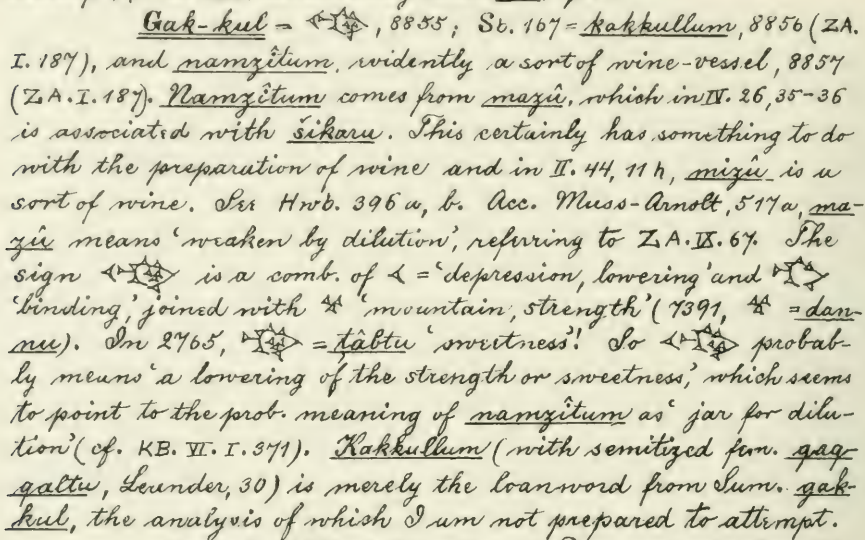 Gak-kul = , 8855; Sb. 167 = kakkullum, 8856 (ZA.
I. 187), and namzîtum, evidently a sort of wine-vessel, 8857
(ZA. I. 187). Namzîtum comes from mazû, which in IV. 26, 35-36
is associated with šikaru. This certainly has something to do
with the preparation of wine and in II. 44, 11 h, mizû is a
sort of wine. See Hwb. 396 a, b. Acc. Muss-Arnolt, 517a, ma-
zû means 'weaken by dilution', referring to ZA. IX. 67. The
sign is a comb. of 𒌋 = 'depression, lowering' and
'binding,' joined with 𒆳 'mountain, strength' (7391, 𒆳 = dan-
nu). In 2765, = ṭâbtu 'sweetness'! So probab-
ly means 'a lowering of the strength or sweetness,' which seems
to point to the prob. meaning of namzîtum as 'jar for dilu-
tion' (cf. KB. VI. I. 371). Kakkullum (with semitized fem. gag-
galtu, Leander, 30) is merely the loanword from Sum. gak-
kul, the analysis of which I am not prepared to attempt.